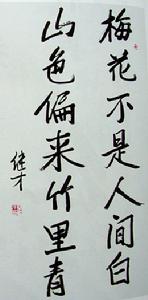 梅花不是人间白
山色偏来竹里青